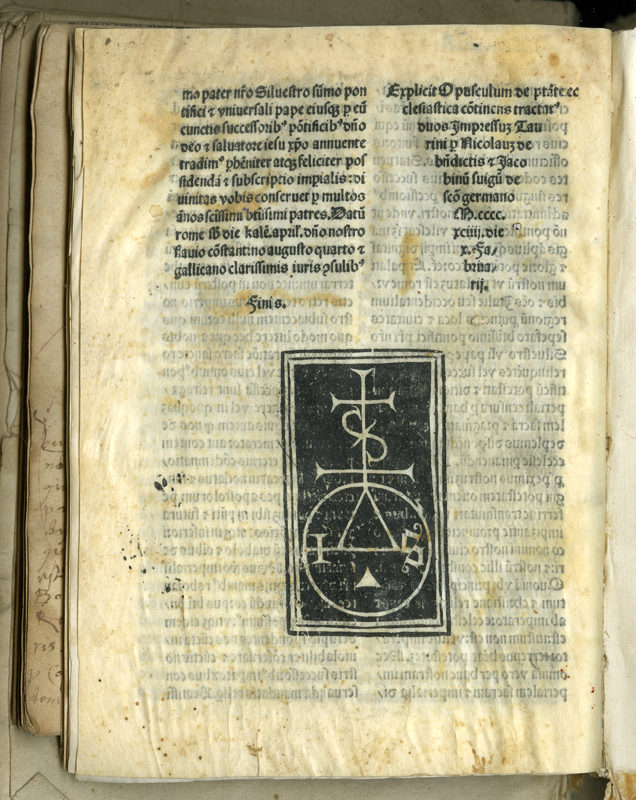 mo pater nr̄o Siluestro sūmo pon
tifici ⁊ vniuersali pape eiusqꝫ ꝑ eū
cunctis successorib⁹ pōtificib⁹ dño
deo ⁊ saluatore iesu xp̄o annuente
tradim⁹ ꝑhēniter atqꝫ feliciter pos
sidenda ⁊ subscriptio imp̄ialis: di
uinitas vobis conseruet ꝑ multos
ānos scissimi bt̄issimi patres. Datū
rome sb̄ die kalē. april. dño nostro
flauio cōstantino augusto quarto ⁊
gallicano clarissimis iuris ꝯsulib⁹
Finis.
Explicit Opusculum de ptāte ec
clesiastica cōtinens tractat⁹
duos Impressuꝫ Tau
rini ꝑ Nicolauꝫ de
bn̄dictis ⁊ Jaco
binū suigū de
scō germano
M.cccc.
xciiij. die
x. Fa/
brua/
rij.
S
I
S